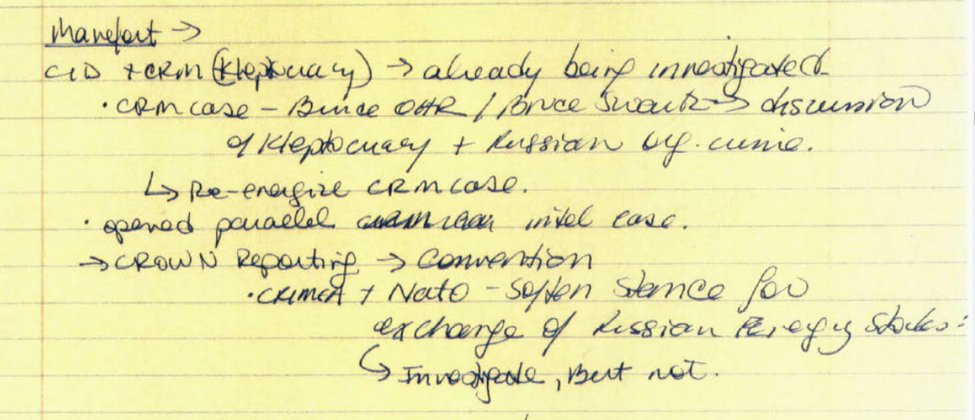 Manafort →
CID + CRM (Kleptocracy) → already being investigated
· CRM case - Bruce OHR / Bruce Swartz → discussion
of Kleptocracy + Russian org. crime.
↳ Re-energize CRM case.
· opened parallel intel case.
→ CROWN Reporting → Convention
· CRIMEA + Nato - Soften stance for
exchange of Russian Energy stocks.
↳ Investigate, But not.